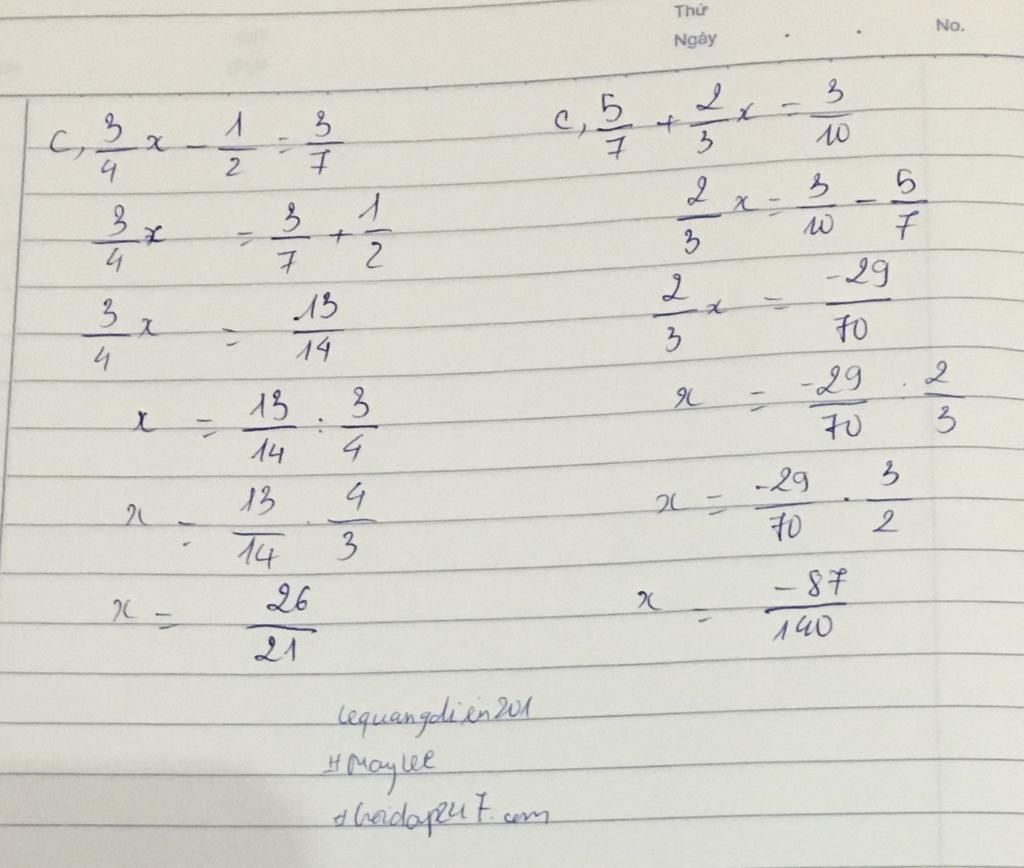 Thứ
Ngày
No.
c, 3/4 x - 1/2 = 3/7
3/4 x = 3/7 + 1/2
3/4 x = 13/14
x = 13/14 : 3/4
x = 13/14 . 4/3
x = 26/21
c, 5/7 + 2/3 x = 3/10
2/3 x = 3/10 - 5/7
2/3 x = -29/70
x = -29/70 : 2/3
x = -29/70 . 3/2
x = -87/140
lequangdien201
#Maylee
#hoidap247.com